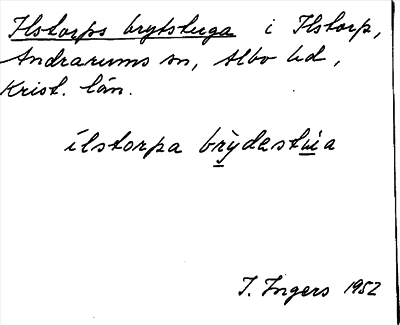 Ilstorps brytstuga i Ilstorp,
Andrarums sn, Albo hd,
Krist. län.
ílstorpa brỳdestúa
I. Ingers 1952